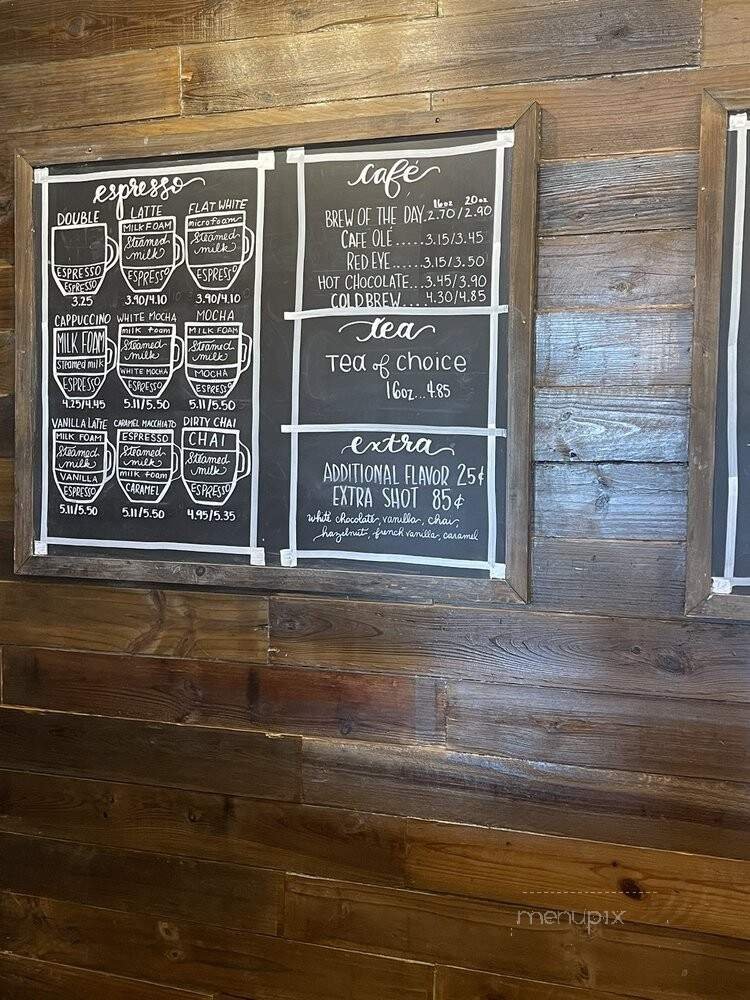 espresso
DOUBLE
ESPRESSO
ESPRESSO
3.25
LATTE
MILK FOAM
Steamed
milk
ESPRESSO
3.90/4.10
FLAT WHITE
microfoam
Steamed
milk
ESPRESSO
3.90/4.10
CAPPUCCINO
MILK FOAM
Steamed milk
ESPRESSO
4.25/4.45
WHITE MOCHA
milk foam
Steamed
milk
WHITE MOCHA
ESPRESSO
5.11/5.50
MOCHA
MILK FOAM
Steamed
milk
MOCHA
ESPRESSO
5.11/5.50
VANILLA LATTE
MILK FOAM
Steamed
milk
VANILLA
ESPRESSO
5.11/5.50
CARAMEL MACCHIATO
ESPRESSO
Steamed
milk
milk foam
CARAMEL
5.11/5.50
DIRTY CHAI
CHAI
Steamed
milk
ESPRESSO
4.95/5.35
café
16oz 20oz
BREW OF THE DAY 2.70/2.90
CAFE OLE.....3.15/3.45
RED EYE.....3.15/3.50
HOT CHOCOLATE...3.45/3.90
COLD BREW....4.30/4.85
tea
Tea of choice
16oz...4.85
extra
ADDITIONAL FLAVOR 25¢
EXTRA SHOT 85¢
white chocolate, vanilla, chai,
hazelnut, french vanilla, caramel
menupix